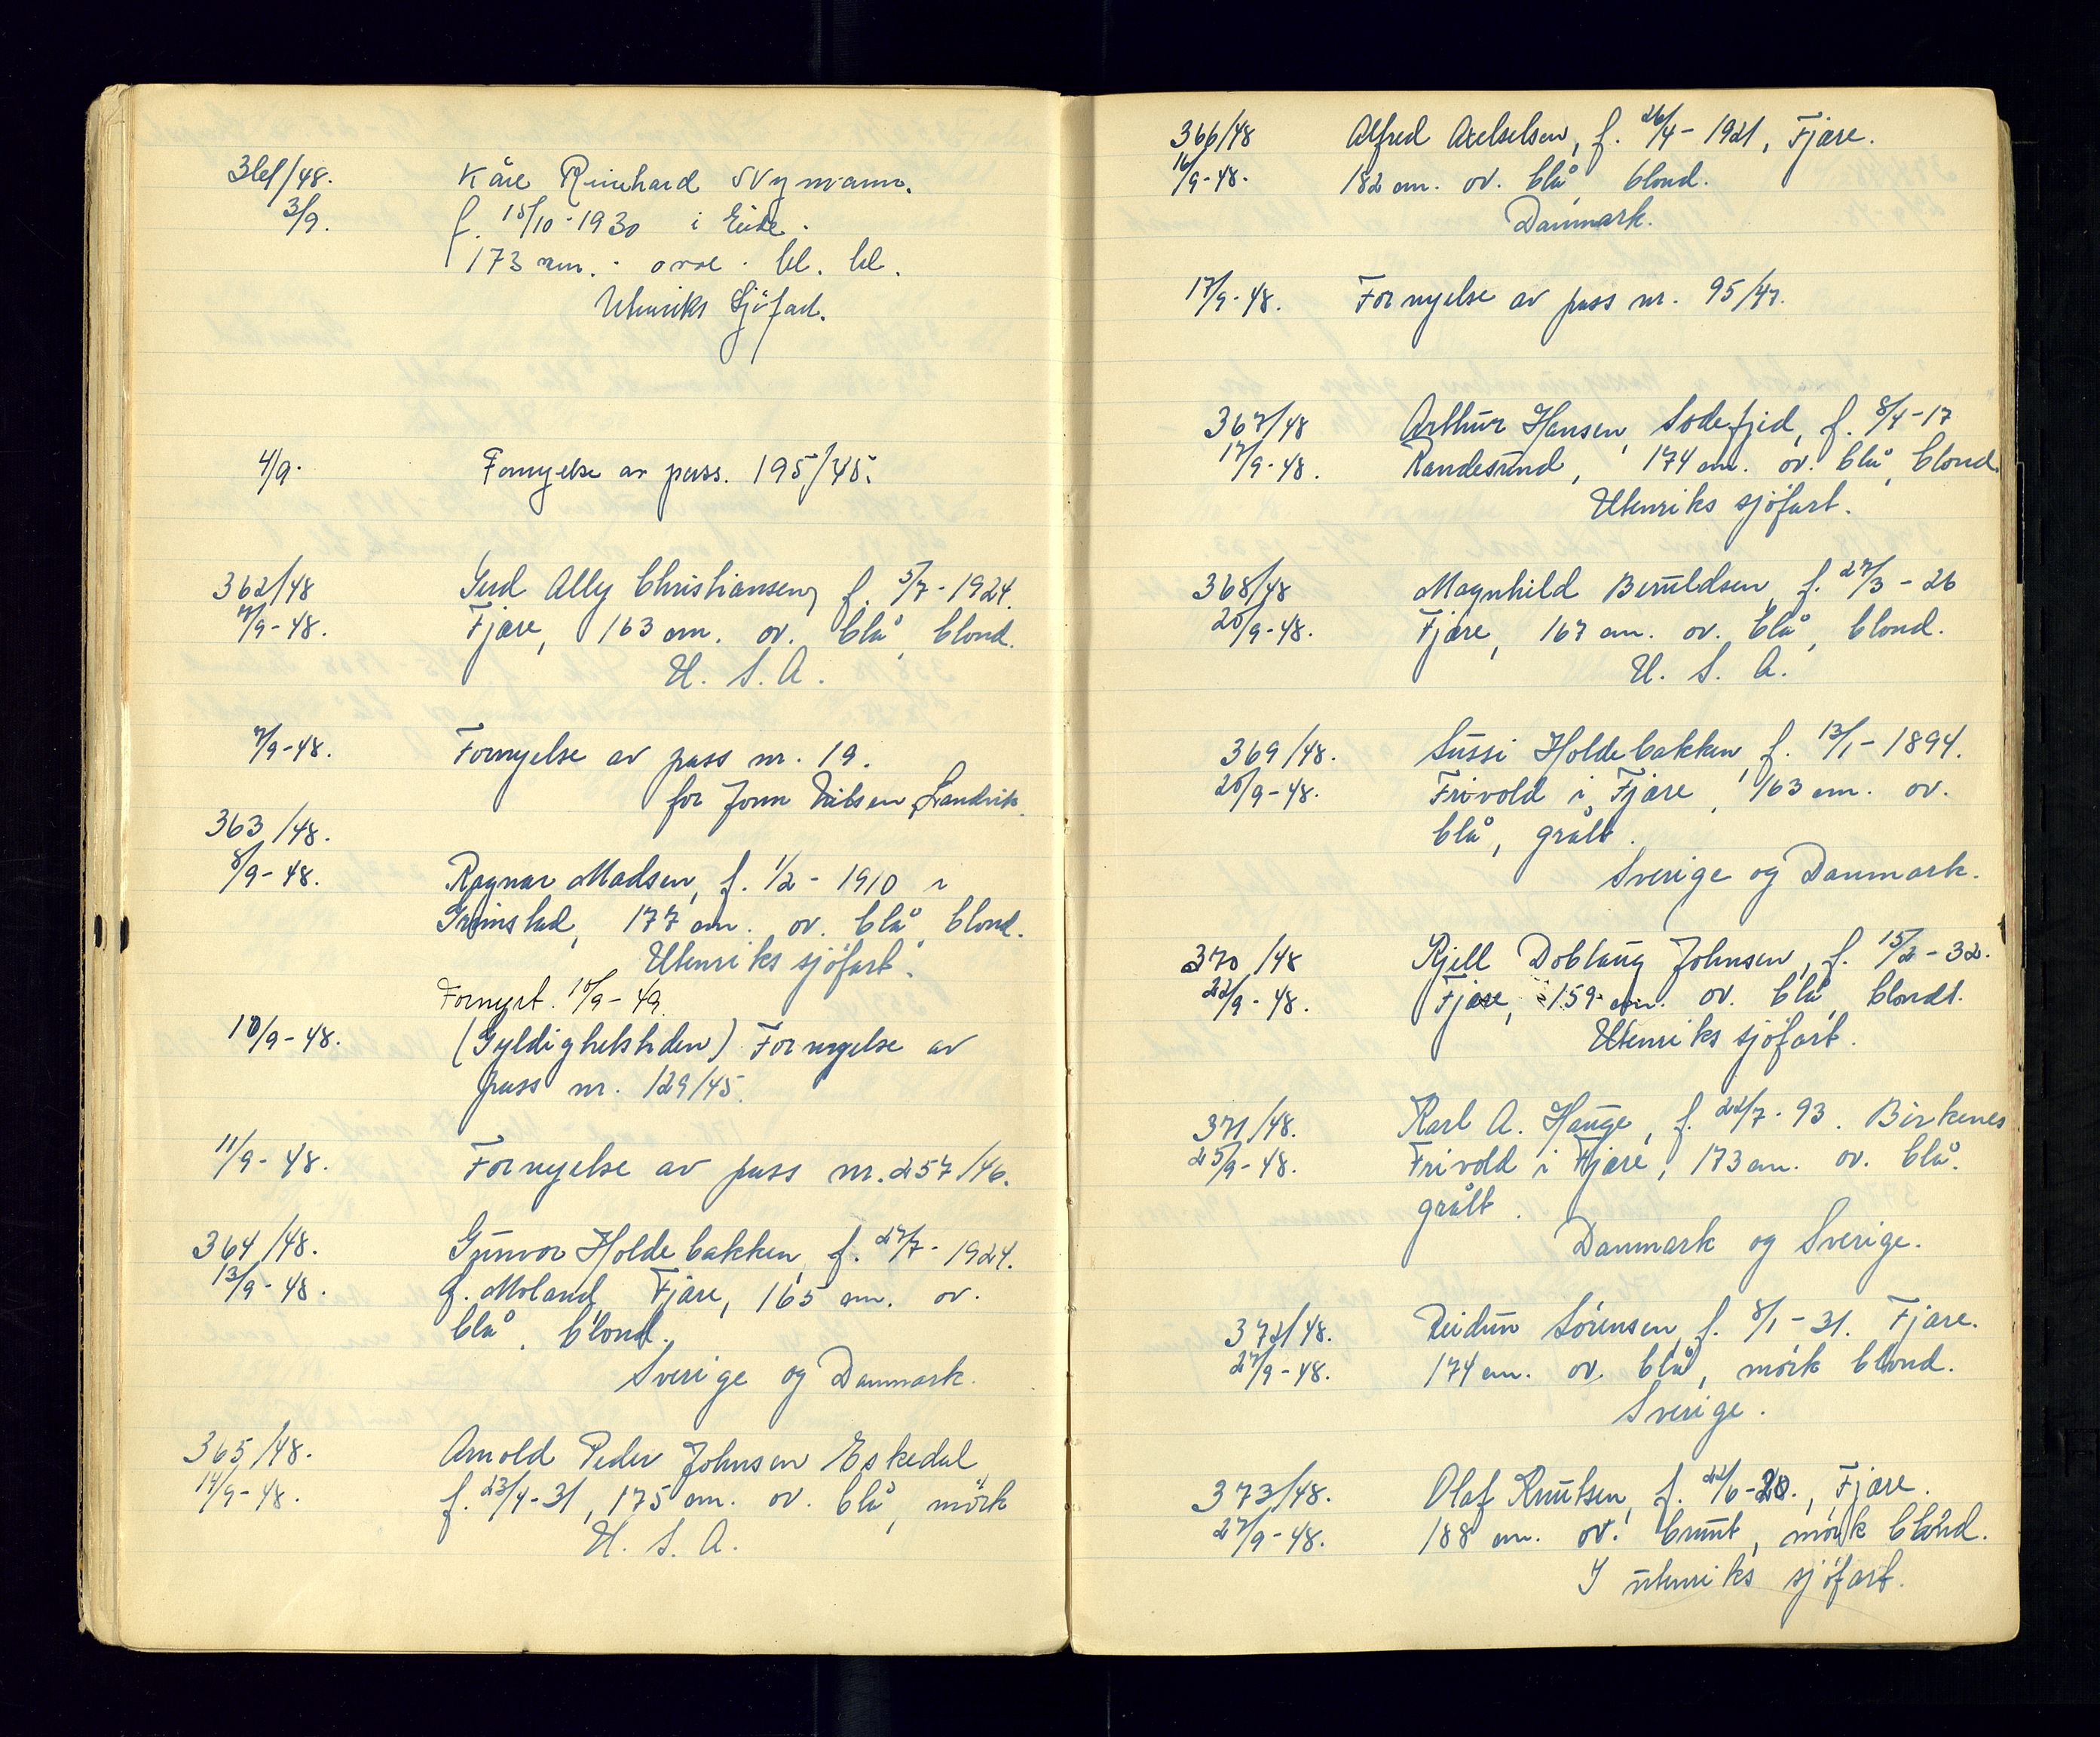 361/48. Kåre Reinhard Nymann.
3/9. f. 15/10-1930 i Eide.
173 cm. ov̄al. bl. bl.
Utenriks Sjöfart.
4/9. Fornyelse av pass. 195/45.
362/48 Gerd Ally Christiansen, f. 5/7-1924.
7/9-48. Fjære, 163 cm. ov. blå, blond.
U. S. A.
7/9-48. Fornyelse av pass nr. 19.
for Jorun Nilsen, Landvik.
363/48.
8/9-48. Ragnar Madsen, f. 1/2-1910 i
Grimstad, 177 cm. ov. blå, blond.
Utenriks sjöfart.
Fornyet. 10/9-49.
10/9-48. (Gyldighetstiden) Fornyelse av
pass nr. 129/45.
11/9-48. Fornyelse av pass nr. 257/46.
364/48. Gunvor Holdebakken, f. 27/7-1924.
13/9-48. g. Moland, Fjære, 165 cm. ov.
blå, blond.
Sverige og Danmark.
365/48. Arnold Peder Johnsen Eskedal
14/9-48. f. 23/4-31, 175 cm. ov. blå, mörk
U. S. A.
366/48 Alfred Axelselsen, f. 26/4-1921, Fjære.
16/9-48. 182 cm. ov. blå, blond.
Danmark.
17/9-48. Fornyelse av pass nr. 95/47.
367/48 Arthur Hansen, Sodefjed, f. 8/4-17
17/9-48. Randesund, 174 cm. ov. blå, blond.
Utenriks sjöfart.
368/48 Magnhild Beruldsen, f. 27/3-26
20/9-48. Fjære, 167 cm. ov. blå, blond.
U. S. A.
369/48. Sussi Holdebakken, f. 13/1-1894.
20/9-48. Frivold i Fjære, 163 cm. ov.
blå, grålt.
Sverige og Danmark.
370/48 Kjell Doblaug Johnsen, f. 15/2-32.
22/9-48. Fjære, 159 cm. ov. blå, blondt.
Utenriks sjöfart.
371/48. Karl A. Hauge, f. 22/7-93. Birkenes
25/9-48. Frivold i Fjære, 173 cm. ov. blå.
grålt.
Danmark og Sverige.
372/48. Reidun Sörensen, f. 8/1-31. Fjære.
27/9-48. 174 cm. ov. blå, mörk blond.
Sverige.
373/48. Olaf Knutsen, f. 22/6-20., Fjære.
27/9-48. 188 cm. ov. brunt, mörk blond.
I utenriks sjöfart.